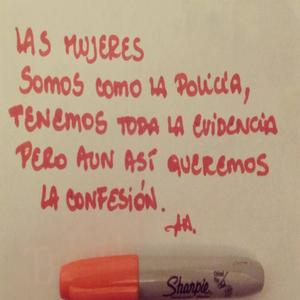 LAS MUJERES
SOMOS COMO LA POLICÍA,
TENEMOS TODA LA EVIDENCIA
PERO AUN ASÍ QUEREMOS
LA CONFESIÓN.
Sharpie